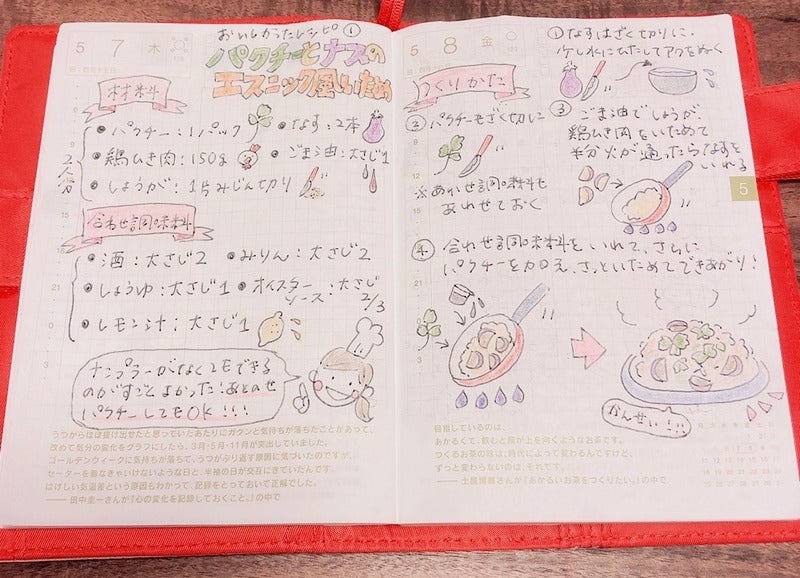 おいしかったレシピ①
5 7 木
旧・四月十五日
パクチーとナスの
エスニック風いため
材料
2人分
• パクチー:1パック
• なす:2本
• 鶏ひき肉:150g
• ごま油:大さじ1
• しょうが:1片みじん切り
合わせ調味料
• 酒:大さじ2
• みりん:大さじ2
• しょうゆ:大さじ1
• オイスターソース:大さじ2/3
• レモン汁:大さじ1
ナンプラーがなくてもできる
のがすごくよかった!あとのせ
パクチーしてもOK!!!
うつからほぼ抜け出せたと思っていたあたりにガクンと気持ちが落ちたことがあって、
改めて気分の変化をグラフにしたら、3月・5月・11月が突出していました。
ゴールデンウィークに気持ちが落ちて、うつがぶり返す原因に気づいたのですが、
セーターを着なきゃいけないような日と、半袖の日が交互にきていたんです。
はげしい気温差という原因もわかって、記録をとっておいて正解でした。
── 田中圭一さんが『心の変化を記録しておくこと。』の中で
5 8 金
つくりかた
① なすはざく切りに、
少し水にひたしてアクをぬく
② パクチーもざく切りに
※あわせ調味料も
あわせておく
③ ごま油でしょうが、
鶏ひき肉をいためて
半分火が通ったらなすを
いれる
5
④ 合わせ調味料をいれて、さらに
パクチーを加え、さっといためてできあがり!
かんせい!!
目指しているのは、
あかるくて、飲むと顔が上を向くようなお茶です。
つくるお茶の味は、時代によって変わるんですけど、
ずっと変わらないのは、それです。
── 土屋博義さんが『あかるいお茶をつくりたい。』の中で